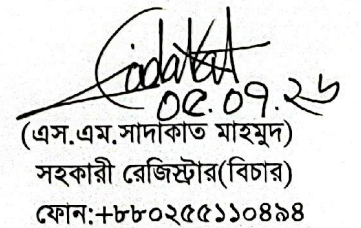 Sadakat
০৫.০৭.২৬
(এস.এম.সাদাকাত মাহমুদ)
সহকারী রেজিস্ট্রার(বিচার)
ফোন:+৮৮০২৫৫১১০৪৯৪